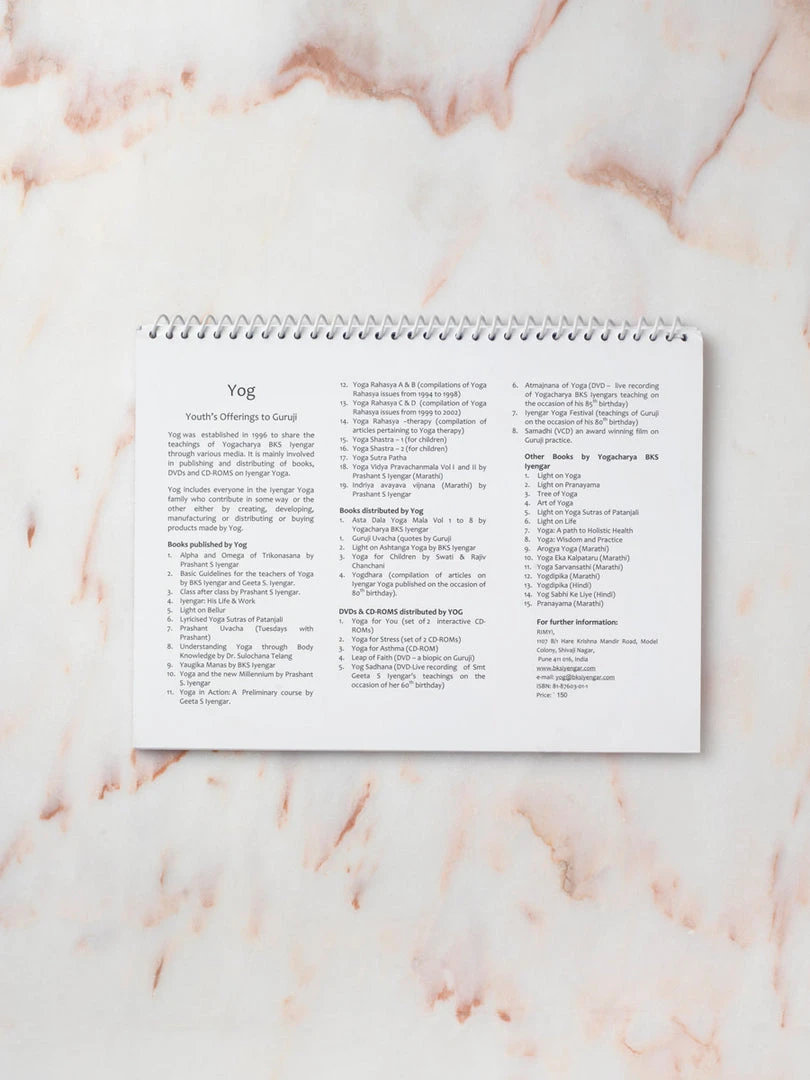 Yog
Youth's Offerings to Guruji
Yog was established in 1996 to share the
teachings of Yogacharya BKS Iyengar
through various media. It is mainly involved
in publishing and distributing of books,
DVDs and CD-ROMS on Iyengar Yoga.
Yog includes everyone in the Iyengar Yoga
family who contribute in some way or the
other either by creating, developing,
manufacturing or distributing or buying
products made by Yog.
Books published by Yog
1. Alpha and Omega of Trikonasana by
Prashant S Iyengar
2. Basic Guidelines for the teachers of Yoga
by BKS Iyengar and Geeta S. Iyengar.
3. Class after class by Prashant S Iyengar.
4. Iyengar: His Life & Work
5. Light on Bellur
6. Lyricised Yoga Sutras of Patanjali
7. Prashant Uvacha (Tuesdays with
Prashant)
8. Understanding Yoga through Body
Knowledge by Dr. Sulochana Telang
9. Yaugika Manas by BKS Iyengar
10. Yoga and the new Millennium by Prashant
S. Iyengar
11. Yoga in Action: A Preliminary course by
Geeta S. Iyengar.
12. Yoga Rahasya A & B (compilations of Yoga
Rahasya issues from 1994 to 1998)
13. Yoga Rahasya C & D (compilation of Yoga
Rahasya issues from 1999 to 2002)
14. Yoga Rahasya –therapy (compilation of
articles pertaining to Yoga therapy)
15. Yoga Shastra – 1 (for children)
16. Yoga Shastra – 2 (for children)
17. Yoga Sutra Patha
18. Yoga Vidya Pravachanmala Vol I and II by
Prashant S Iyengar (Marathi)
19. Indriya avayava vijnana (Marathi) by
Prashant S Iyengar
Books distributed by Yog
1. Asta Dala Yoga Mala Vol 1 to 8 by
Yogacharya BKS Iyengar
1. Guruji Uvacha (quotes by Guruji
2. Light on Ashtanga Yoga by BKS Iyengar
3. Yoga for Children by Swati & Rajiv
Chanchani
4. Yogdhara (compilation of articles on
Iyengar Yoga published on the occasion of
80th birthday).
DVDs & CD-ROMS distributed by YOG
1. Yoga for You (set of 2 interactive CD-
ROMs)
2. Yoga for Stress (set of 2 CD-ROMs)
3. Yoga for Asthma (CD-ROM)
4. Leap of Faith (DVD – a biopic on Guruji)
5. Yog Sadhana (DVD-Live recording of Smt
Geeta S Iyengar's teachings on the
occasion of her 60th birthday)
6. Atmajnana of Yoga (DVD – live recording
of Yogacharya BKS Iyengars teaching on
the occasion of his 85th birthday)
7. Iyengar Yoga Festival (teachings of Guruji
on the occasion of his 80th birthday)
8. Samadhi (VCD) an award winning film on
Guruji practice.
Other Books by Yogacharya BKS
Iyengar
1. Light on Yoga
2. Light on Pranayama
3. Tree of Yoga
4. Art of Yoga
5. Light on Yoga Sutras of Patanjali
6. Light on Life
7. Yoga: A path to Holistic Health
8. Yoga: Wisdom and Practice
9. Arogya Yoga (Marathi)
10. Yoga Eka Kalpataru (Marathi)
11. Yoga Sarvansathi (Marathi)
12. Yogdipika (Marathi)
13. Yogdipika (Hindi)
14. Yog Sabhi Ke Liye (Hindi)
15. Pranayama (Marathi)
For further information:
RIMYI,
1107 B/1 Hare Krishna Mandir Road, Model
Colony, Shivaji Nagar,
Pune 411 016, India
www.bksiyengar.com
e-mail: yog@bksiyengar.com
ISBN: 81-87603-01-1
Price: ` 150